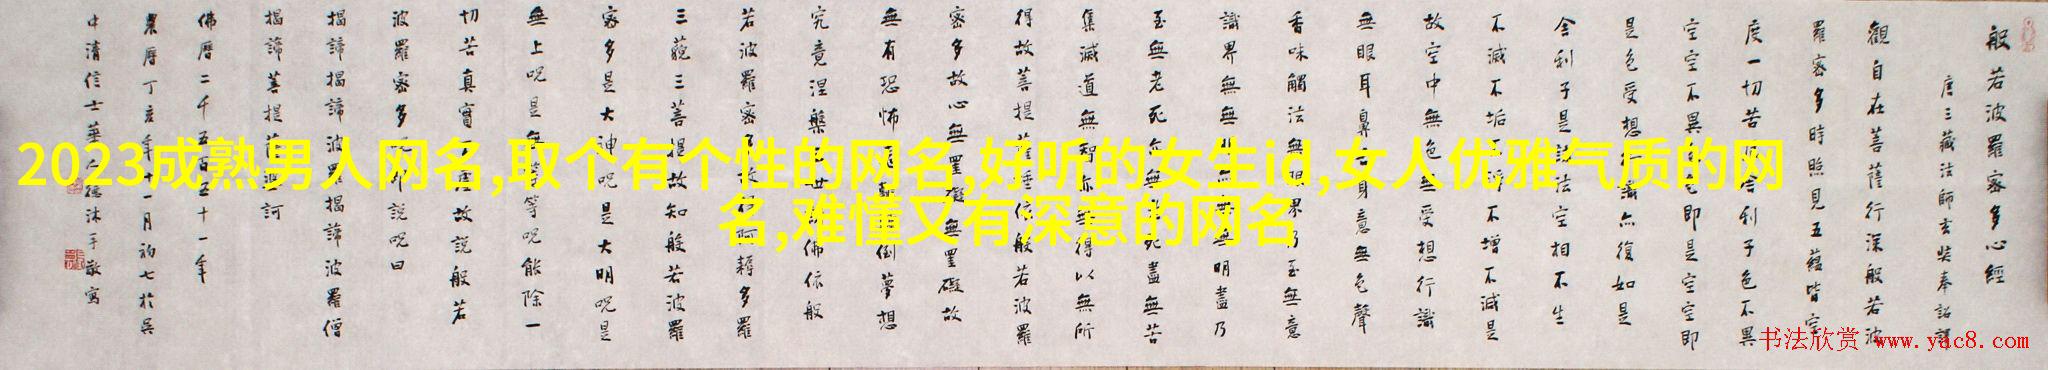 2023成熟男人网名,取个有个性的网名,好听的女生id,女人优雅气质的网
名,难懂又有深意的网名
般若波羅密多心經
唐三藏法師玄奘奉詔譯
觀自在菩薩行深般若波
羅密多時照見五蘊皆空
度一切苦厄舍利子色不異
空空不異色色即是空空即
是色受想行識亦復如是
舍利子是諸法空相不生
不滅不垢不淨不增不減是
故空中無色無受想行識
無眼耳鼻舌身意無色聲
香味觸法無眼界乃至無意
識界無無明亦無無明盡乃
至無老死亦無老死盡無苦
集滅道無智亦無得以無所
得故菩提薩埵依般若波羅
密多故心無罣礙無罣礙故
無有恐怖遠離顛倒夢想
究竟涅槃三世諸佛依般
若波羅密多故得阿耨多羅
三藐三菩提故知般若波羅
密多是大神咒是大明咒是
無上呪是無等等呪能除一
切苦真實不虛故說般若
波羅密多呪即說呪曰
揭諦揭諦波羅揭諦波羅僧
揭諦菩提薩婆訶
佛曆二千五百五十一年
農曆丁亥年十一月初七於吳
中清信士華人德沐手敬寫
书法欣赏 www.yac8.com